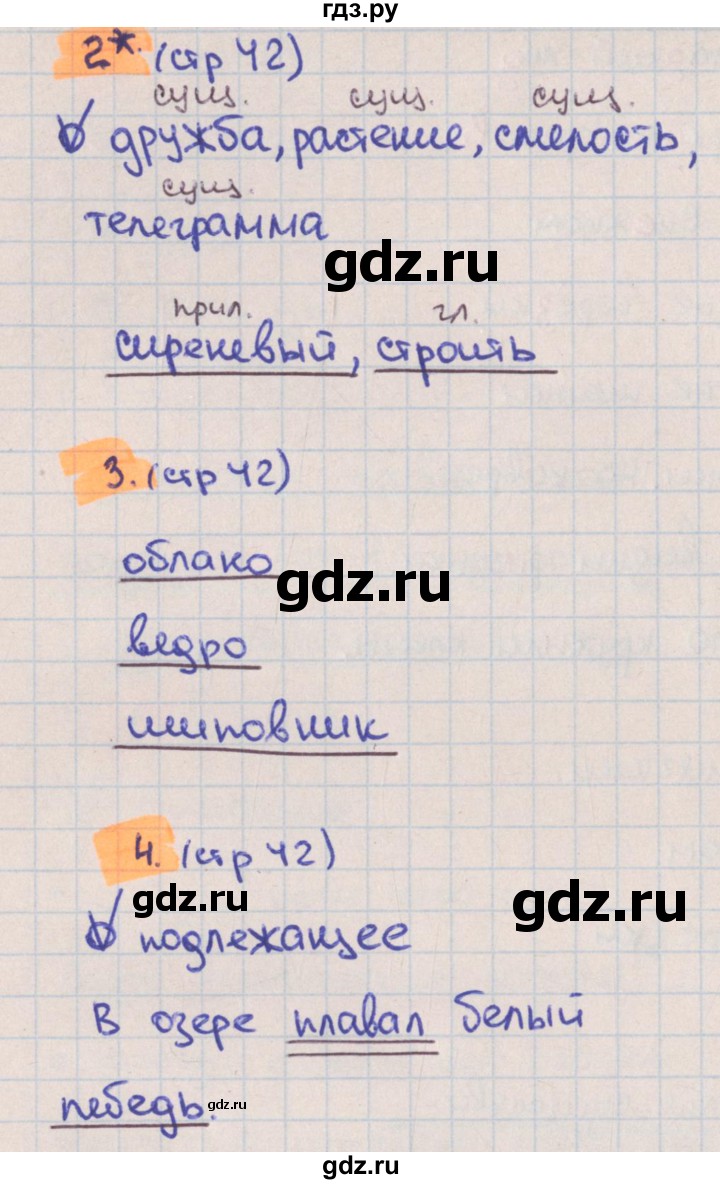 гдз.ру
2*. (стр 42)
сущ. сущ. сущ.
дружба, растение, смелость,
сущ.
телеграмма
gdz.ru
прил. гл.
сиреневый, строить
3. (стр 42)
облако
gdz.ru
ведро
шиповник
4. (стр 42)
gdz.ru
gdz.ru
подлежащее
В озере плавал белый
лебедь.
gdz.ru
gdz.ru